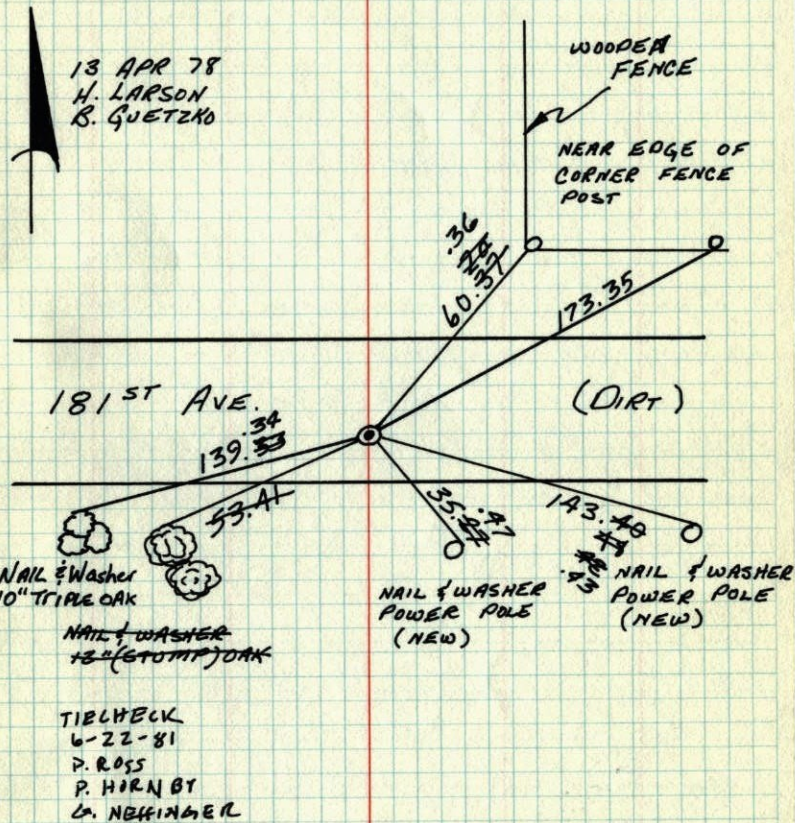 13 APR 78
H. LARSON
B. GUETZKO
WOODEN
FENCE
NEAR EDGE OF
CORNER FENCE
POST
.36
60.37
173.35
181ST AVE.
(DIRT)
.34
139.33
53.41
35.27
.47
143.40
.43
NAIL & Washer
10" TRIPLE OAK
NAIL & WASHER
12" (STUMP) OAK
NAIL & WASHER
POWER POLE
(NEW)
NAIL & WASHER
POWER POLE
(NEW)
TIECHECK
6-22-81
P. ROSS
P. HORNBY
G. NEFFINGER